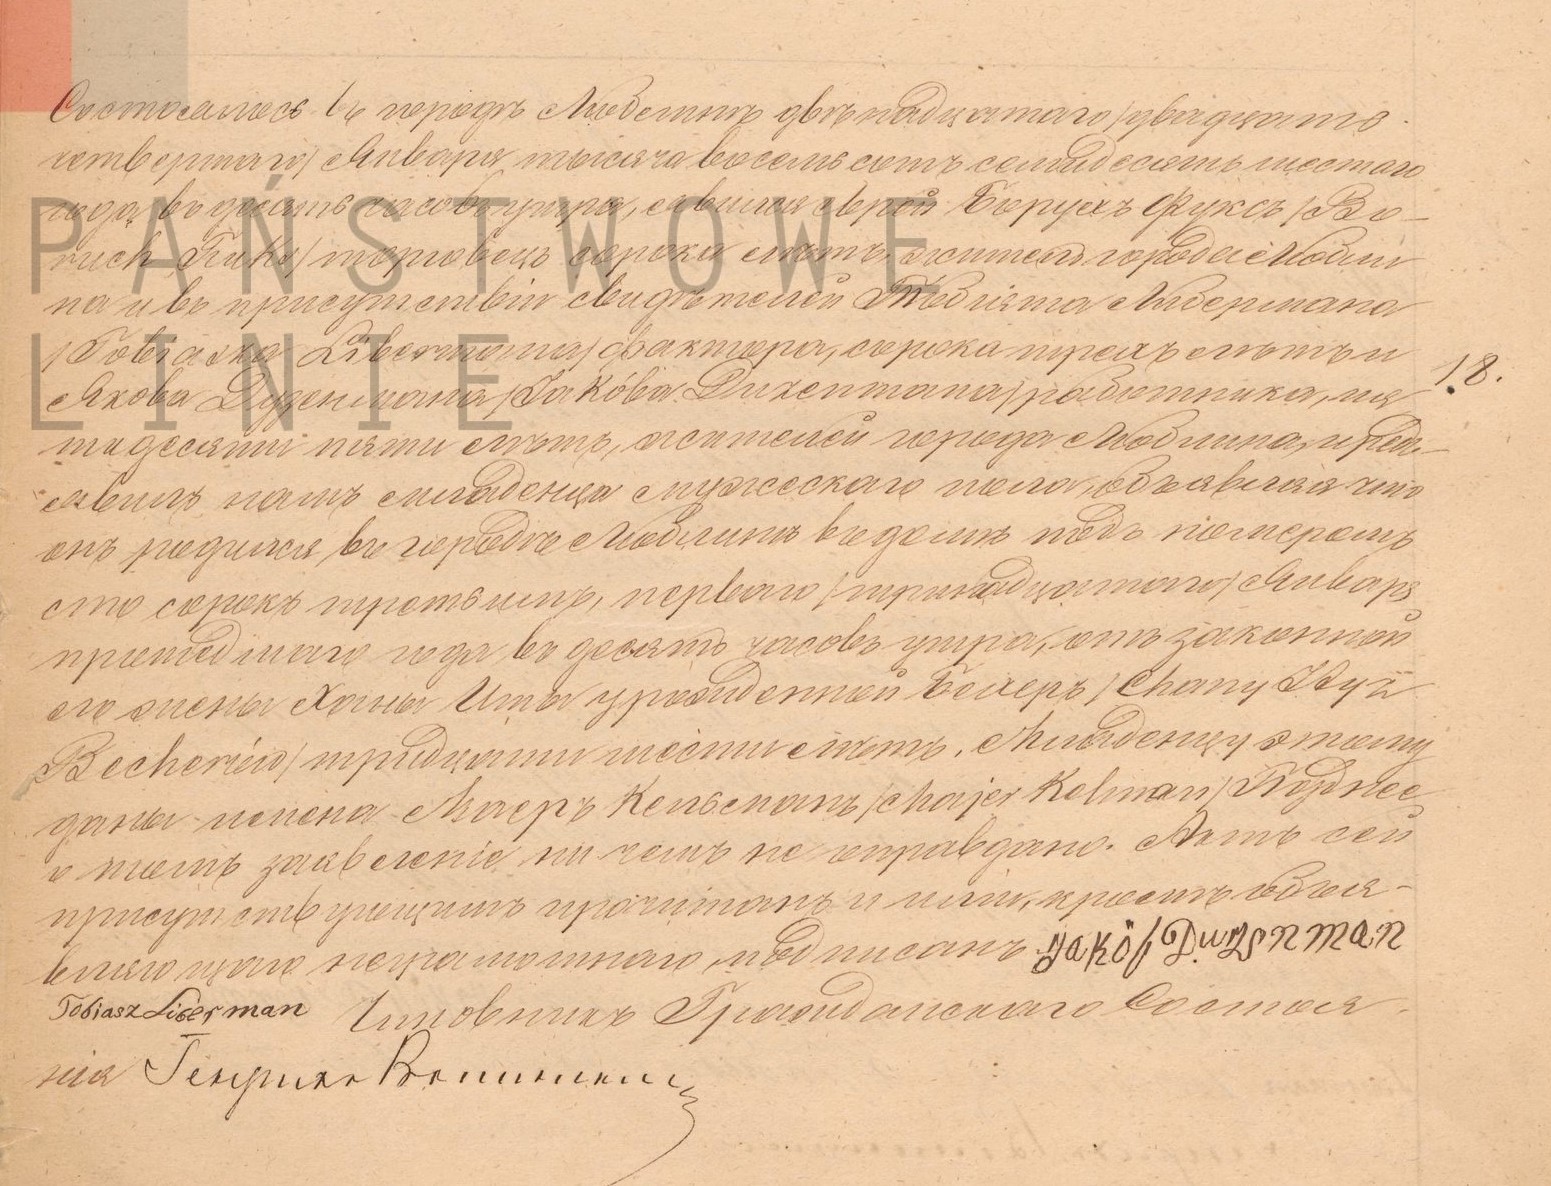 Состоялось въ городѣ Люблинѣ двѣнадцатаго /двадцать
четвертаго/ Января тысяча восемьсотъ семьдесятъ шестаго
года, въ десять часовъ утра, явился еврей Борухъ Фуксъ /Bo-
ruch Fuks/ торговецъ сорока лѣтъ, житель города Любли
на и въ присутствіи свидѣтелей Тобіяша Либермана
/Tobiasza Libermana/ фактора, сорока трехъ лѣтъ и
Якова Дуженмана /Jakóba Duzenmana/ работника, пя
тидесяти пяти лѣтъ, жителей города Люблина, пред-
явилъ намъ младенца мужескаго пола, объявляя что
онъ родился въ городѣ Люблинѣ въ домѣ подъ номеромъ
сто сорокъ третьимъ, перваго /тринадцатаго/ Января
прошедшаго года въ десять часовъ утра, отъ законной
его жены Ханы Иты урожденной Бехеръ /Chany Ity z
Becherów/ тридцати шести лѣтъ. Младенцу этому
даны имена Маеръ Кельманъ /Majer Kelman/ Позднее
о томъ заявленіе ни чемъ не оправдано. Актъ сей
присутствующимъ прочитанъ и ими, кромѣ объя-
вляющаго неграмотнаго, подписанъ Jakób Duzenman
Tobiasz Liberman Чиновникъ Гражданскаго Состоя
нія Генрихъ
18.
PAŃSTWOWE
LINIE